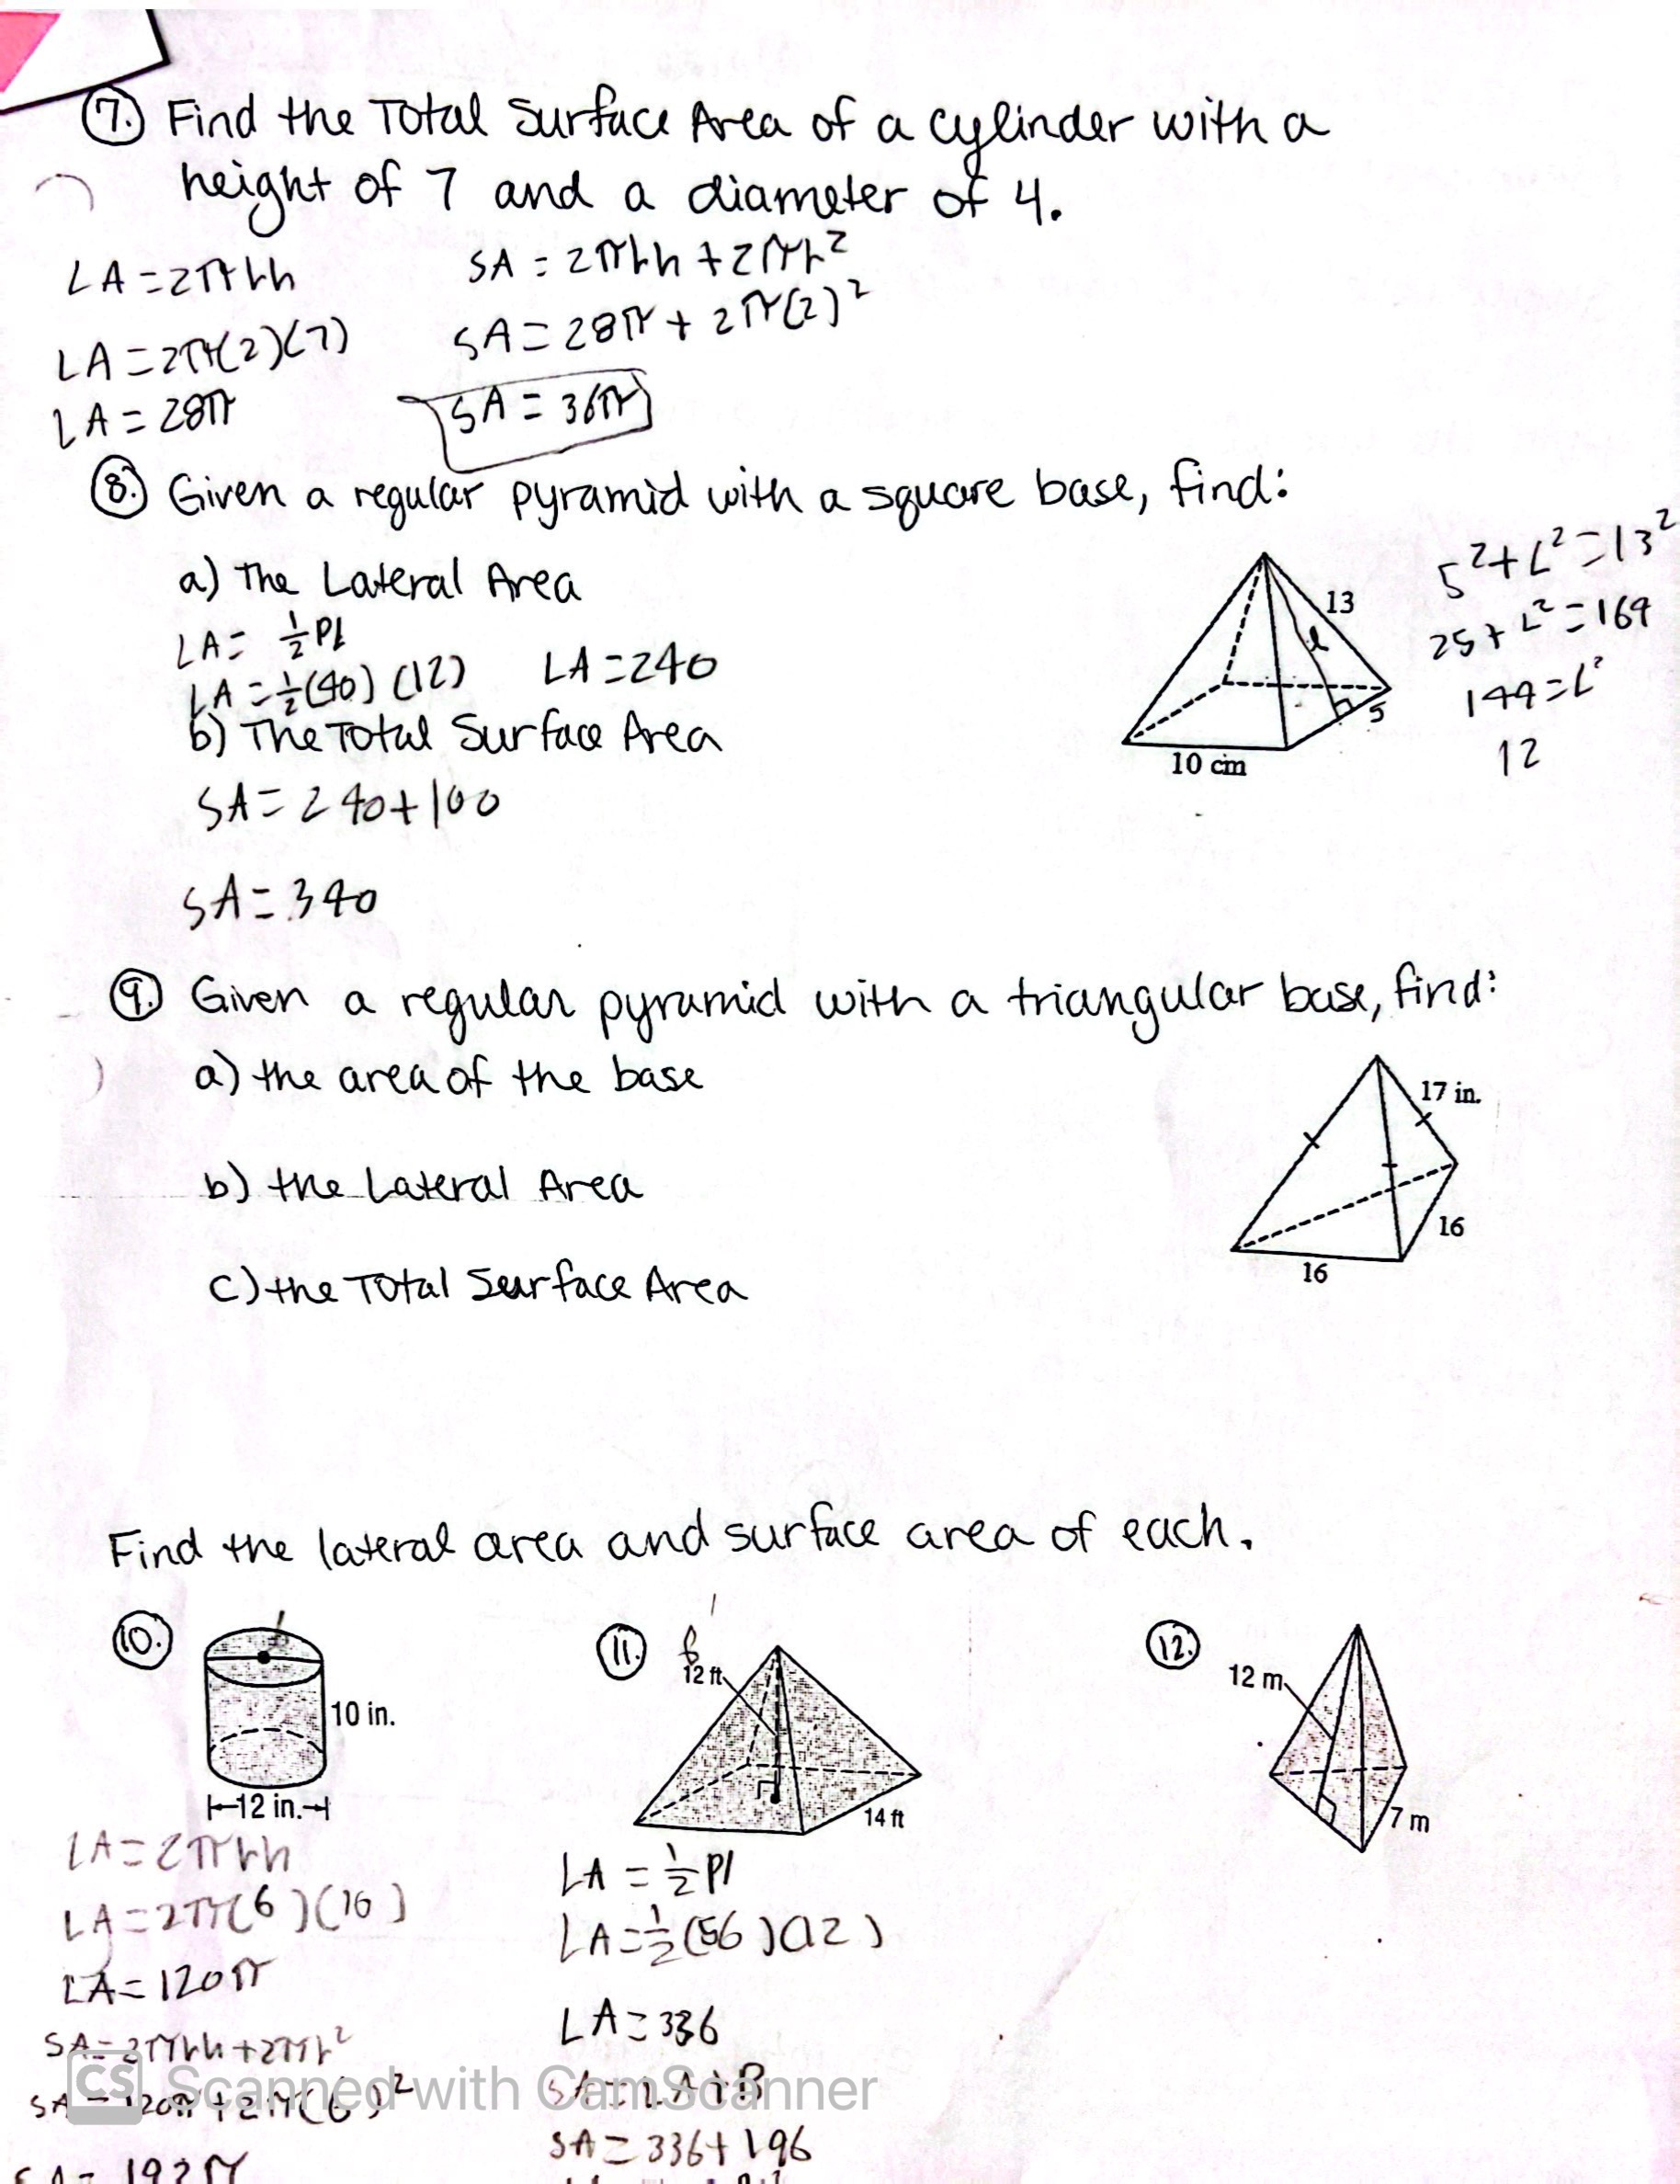 7. Find the Total Surface Area of a cylinder with a
height of 7 and a diameter of 4.
LA = 2πrh
SA = 2πrh + 2πr²
LA = 2π(2)(7)
SA = 28π + 2π(2)²
LA = 28π
SA = 36π
8. Given a regular pyramid with a square base, find:
a) The Lateral Area
LA = ½Pl
LA = ½(40)(12)
LA = 240
b) The Total Surface Area
SA = 240 + 100
SA = 340
13
l
5
10 cm
5² + L² = 13²
25 + L² = 169
144 = L²
12
9. Given a regular pyramid with a triangular base, find:
a) the area of the base
b) the Lateral Area
c) the Total Surface Area
17 in.
16
16
Find the lateral area and surface area of each.
10.
10 in.
12 in.
LA = 2πrh
LA = 2π(6)(10)
LA = 120π
SA = 2πrh + 2πr²
SA = 120π + 2π(6)²
SA = 192π
11.
12 ft
14 ft
LA = ½Pl
LA = ½(56)(12)
LA = 336
SA = LA + B
SA = 336 + 196
12.
12 m
7 m
CS Scanned with CamScanner